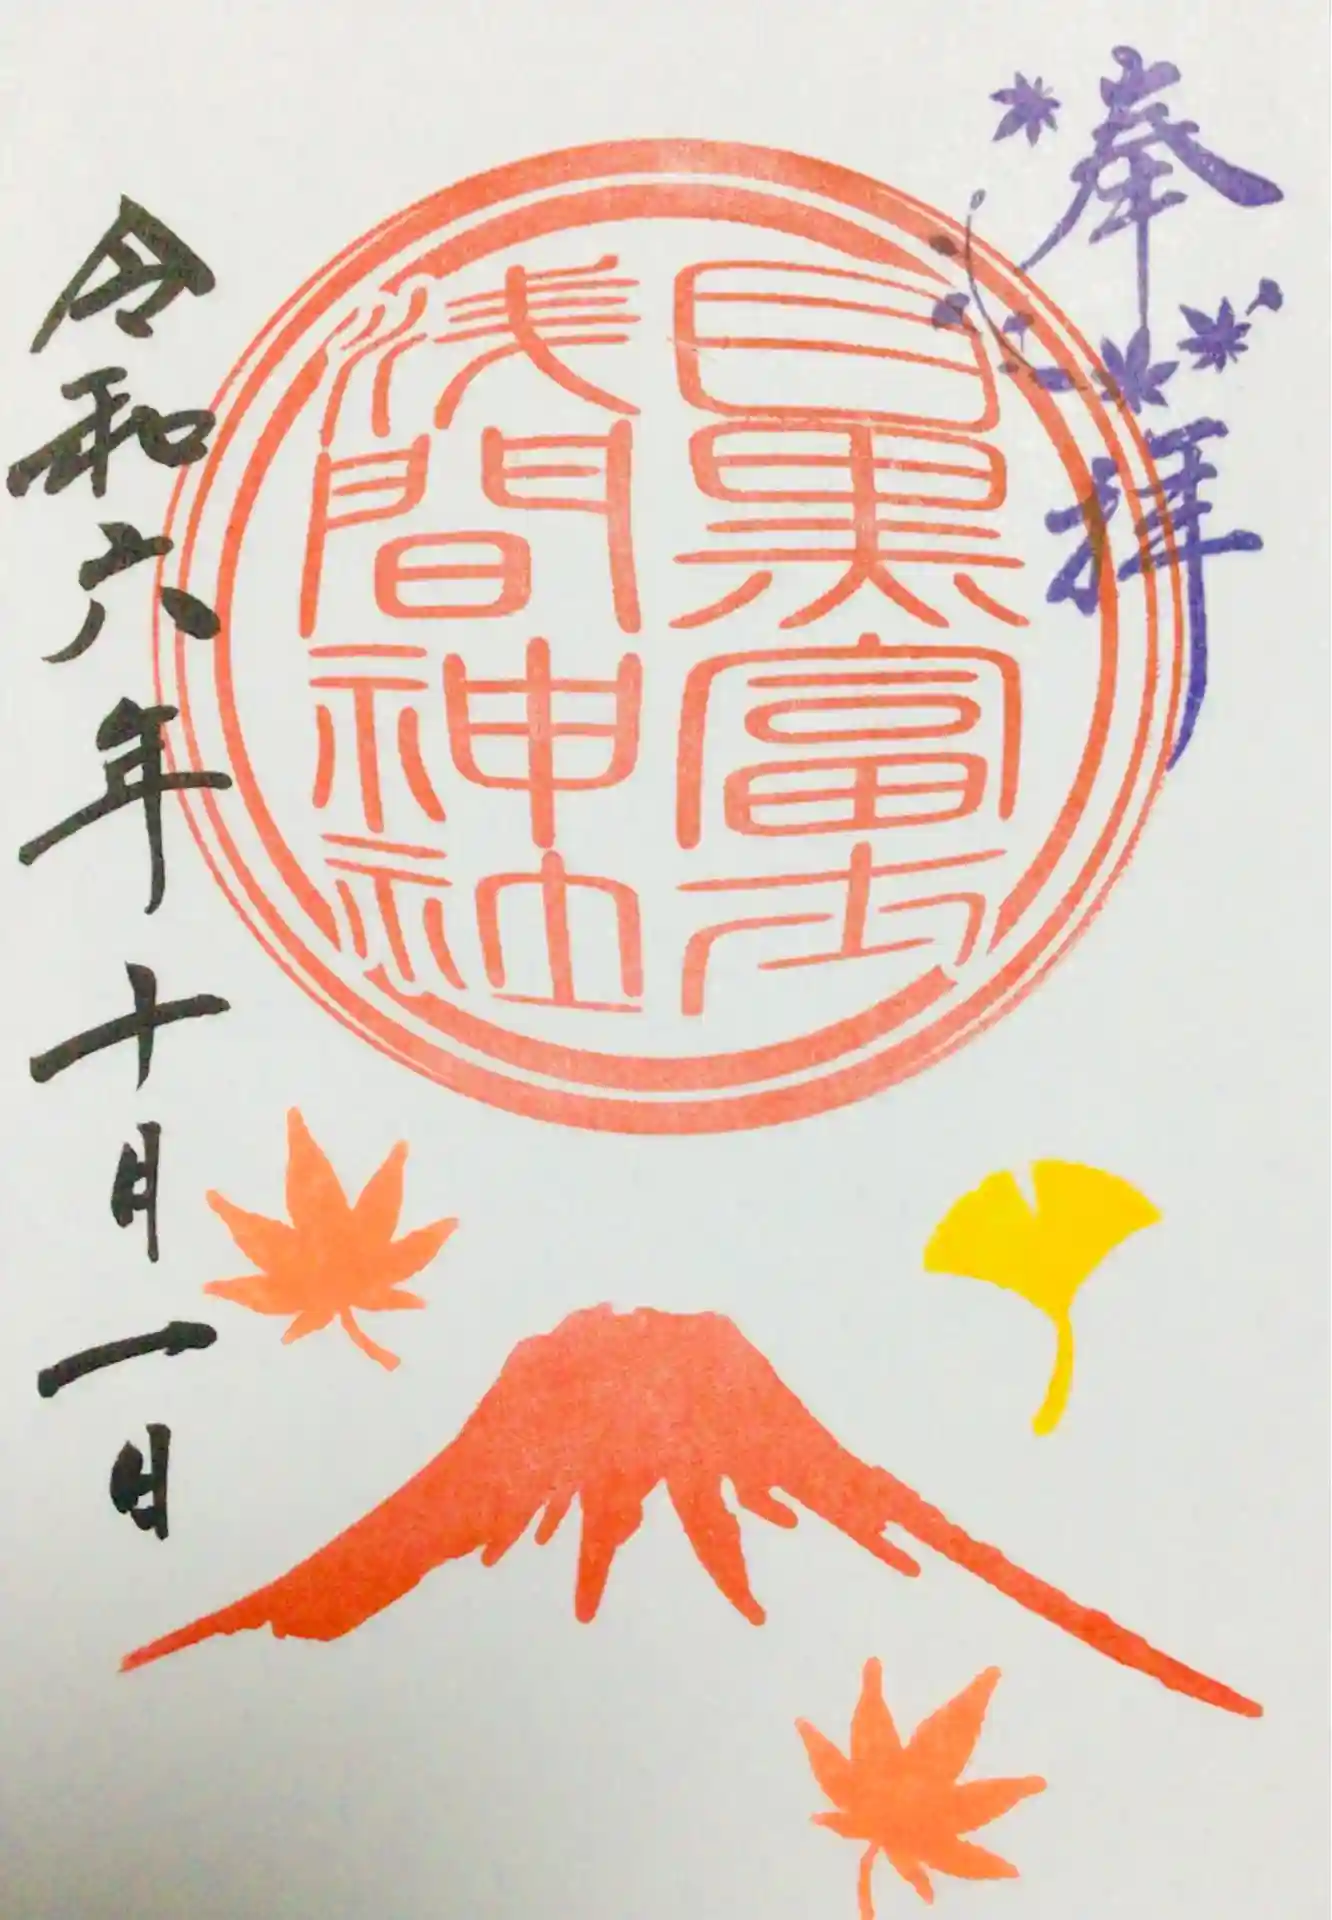 奉拝
目黒富士
浅間神社
令和六年十月一日